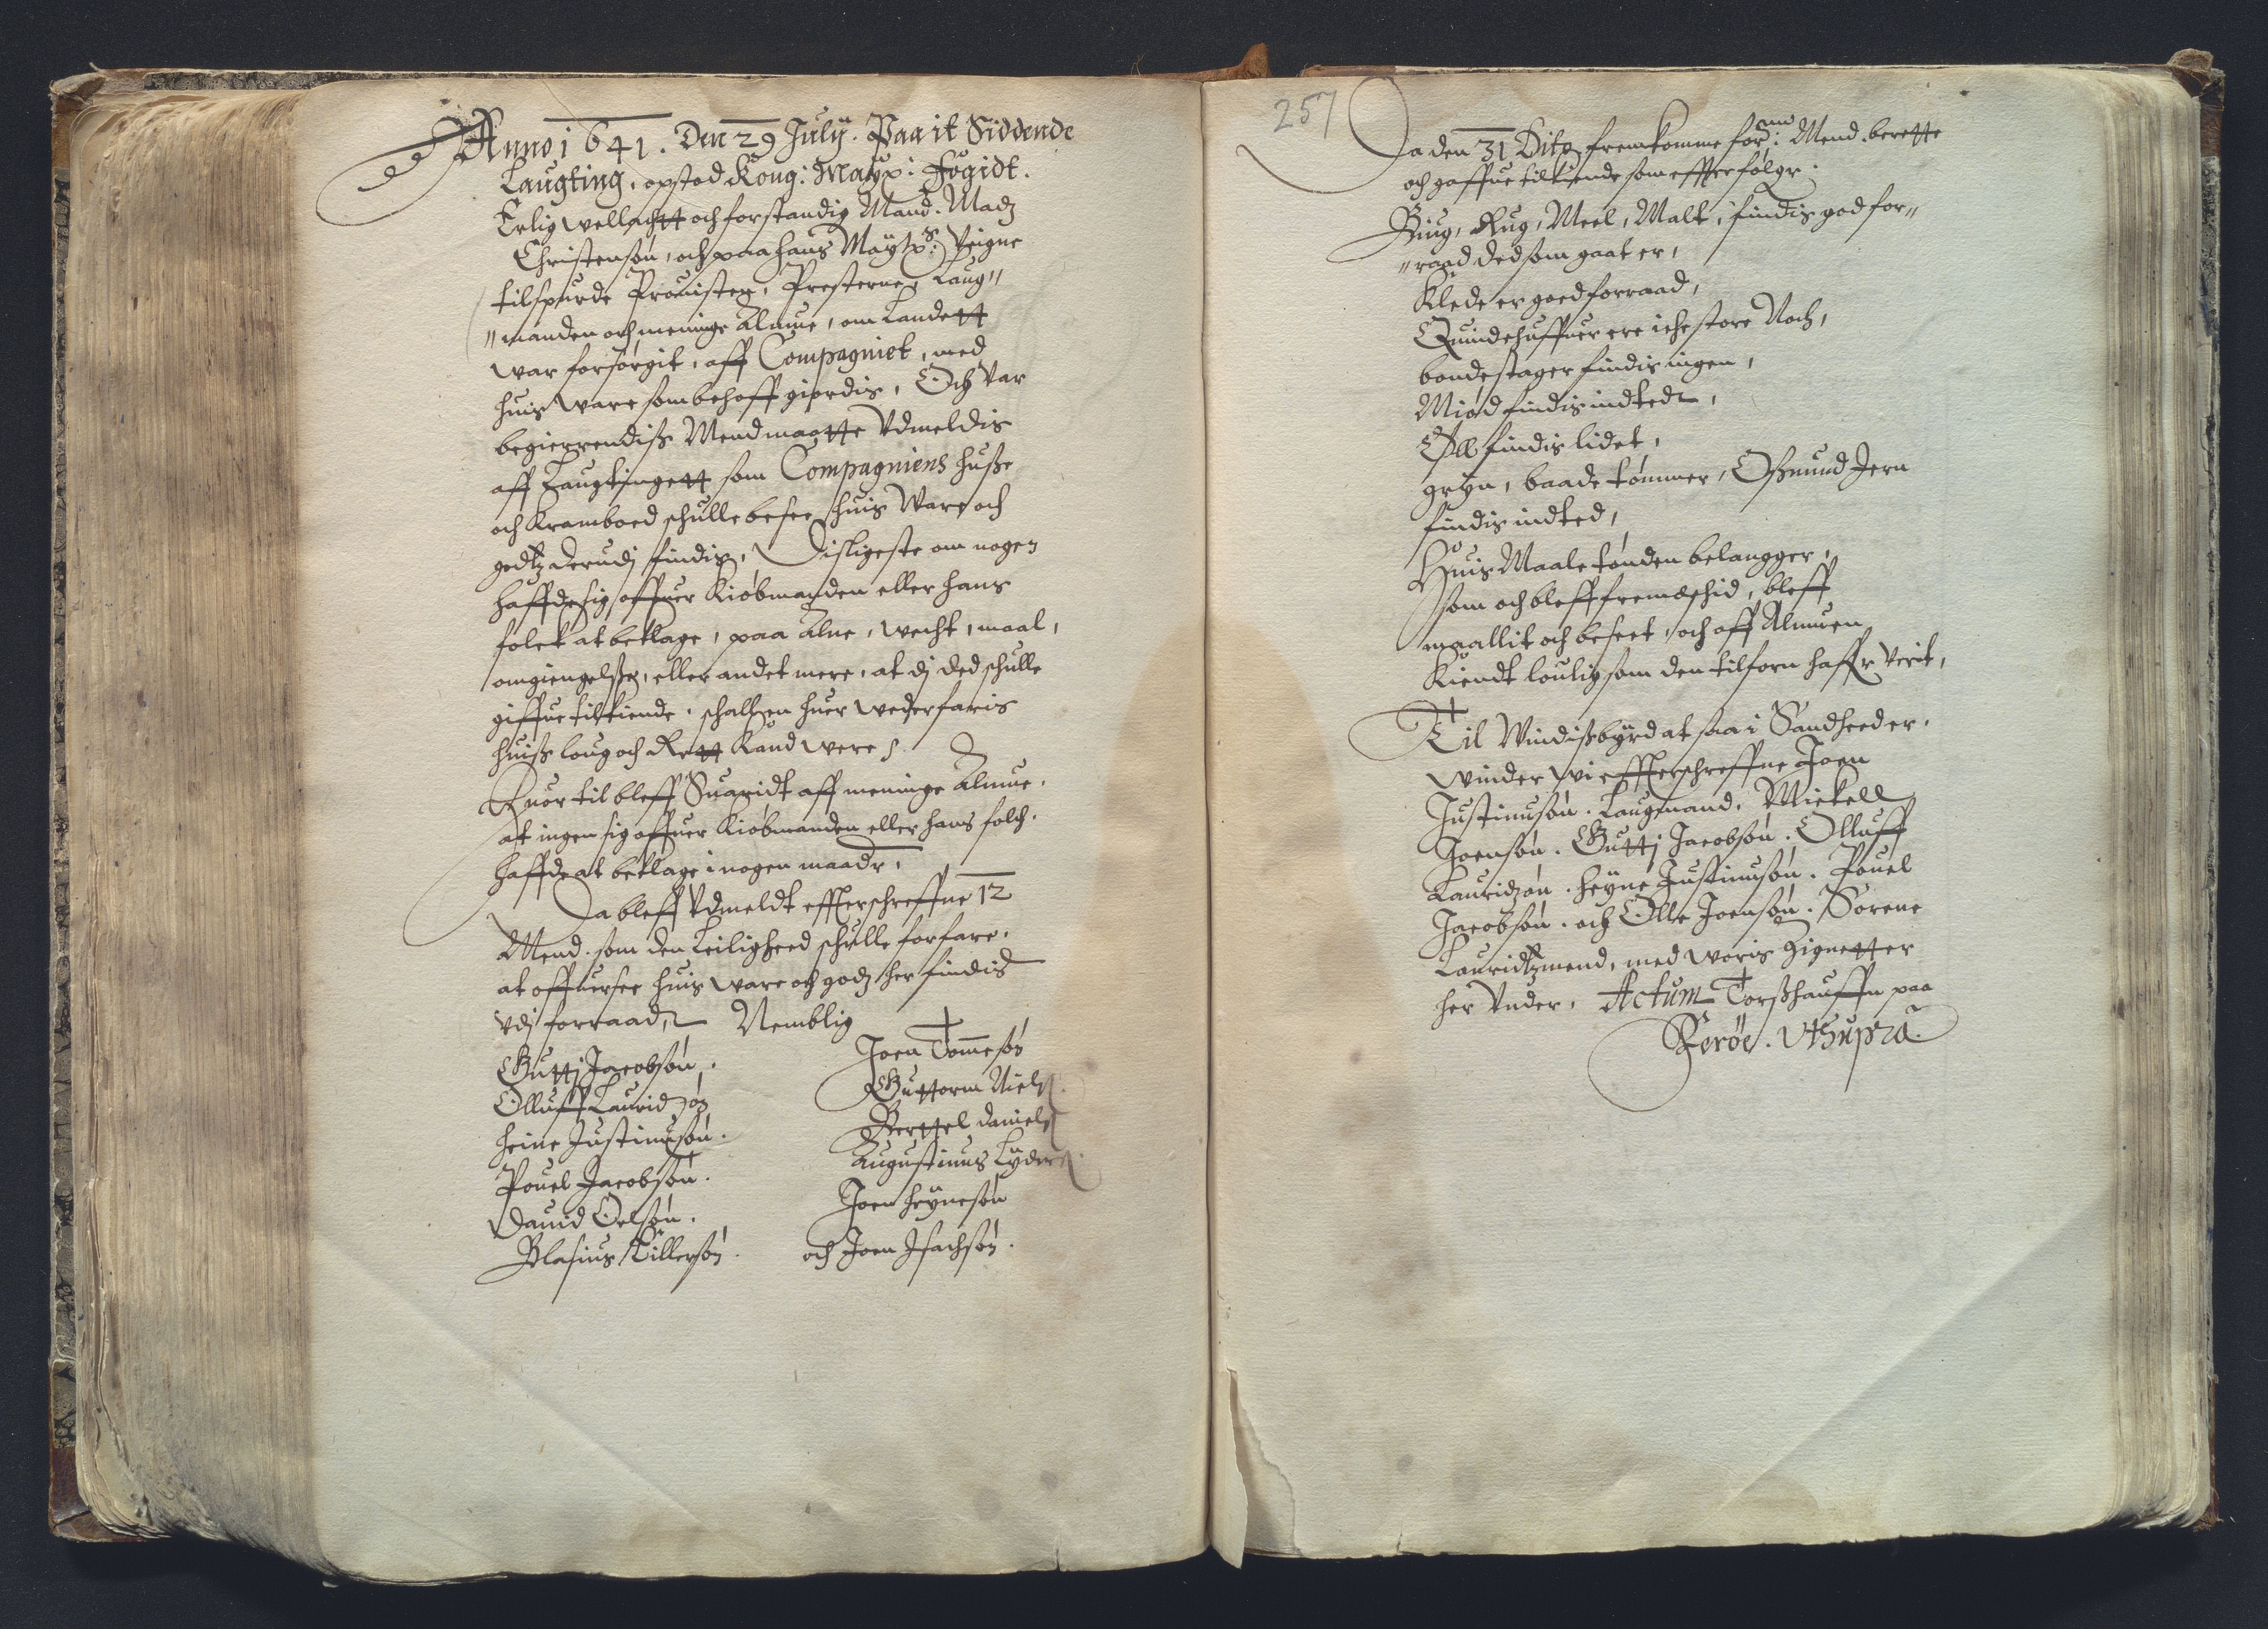 Anno 1641. Den 29 Julij. Paa it Siddende
Laugting, opstod Kong: Maytz: Fogidt.
Erlig wellachtt och forstandig Mand. Madz
Christensøn, och paa hans Maÿtz: Veigne
tilspurde Prouisten, Presterne, Laug"
"manden och meninge Almue, om Landett
war forsørgit, aff Compagniet, med
huis ware som behoff giordis, Och var
begierendiss Mend maatte Vdmeldis
aff Laugtingett som Compagniens Husse
och Kramboed schulle besee, huis Ware och
godtz derudj findis, Disligeste om nogen
haffde sig offuer Kiøbmanden eller hans
folck at beklage, paa Alne, wecht, maal,
omgiengelsse, eller andet mere, at dj ded schulle
giffue tilkiende, schall en huer wederfaris
huiss loug och Rett Kand were.
Huor til bleff Suaridt aff meninge Almue.
at ingen sig offuer Kiøbmanden eller hans folch.
haffde at beklage i nogen maade,
Da bleff Vdmeldt effterschreffne 12
Mend. som den Leiligheed schulle forfare.
at offuersee huis ware och godz her findis
vdj forraad, Nemblig
Guttj Jacobsøn.
Olluff Lauridzøn
Heine Justinusøn.
Pouel Jacobsøn.
Dauid Oelsøn.
Blasius Tillersøn.
Joen Tommesøn
Guttorm Niels.
Berttel Daniels
Augustinus Lÿders.
Joen Heÿnesøn
och Joen Isachsøn.
257
Da den 31 Dito fremkomme forne: Mend. berette
och gaffue tilkiende som effterfølger.
Biug, Rug, Meel, Malt, findis god for"
"raad ded som gaat er,
Klede er goed forraad,
Quindehuffuer ere iche store Noch,
bondestager findis ingen,
Miød findis indted,
Øll findis lidet,
gryn, baade tømmer, Ossmund Jern
findis indted,
Huis Maaletønden belangger,
som och bleff fremeschid, bleff
maallit och beseet, och aff Almuen
Kiendt loulig som den tilforn haffr Verit,
Til Windissbÿrd at saa i Sandheed er.
Winder wi effterschreffne Joen
Justinusøn. Laugmand. Mickell
Joensøn. Guttj Jacobsøn. Olluff
Lauridzøn. Heÿne Justinusøn. Pouel
Jacobsøn. och Olle Joensøn. Sorene
Lauridtzmend, med woris Zignetter
her Vnder. Actum Torsshauffn paa
Ferøe. Vt Supra.